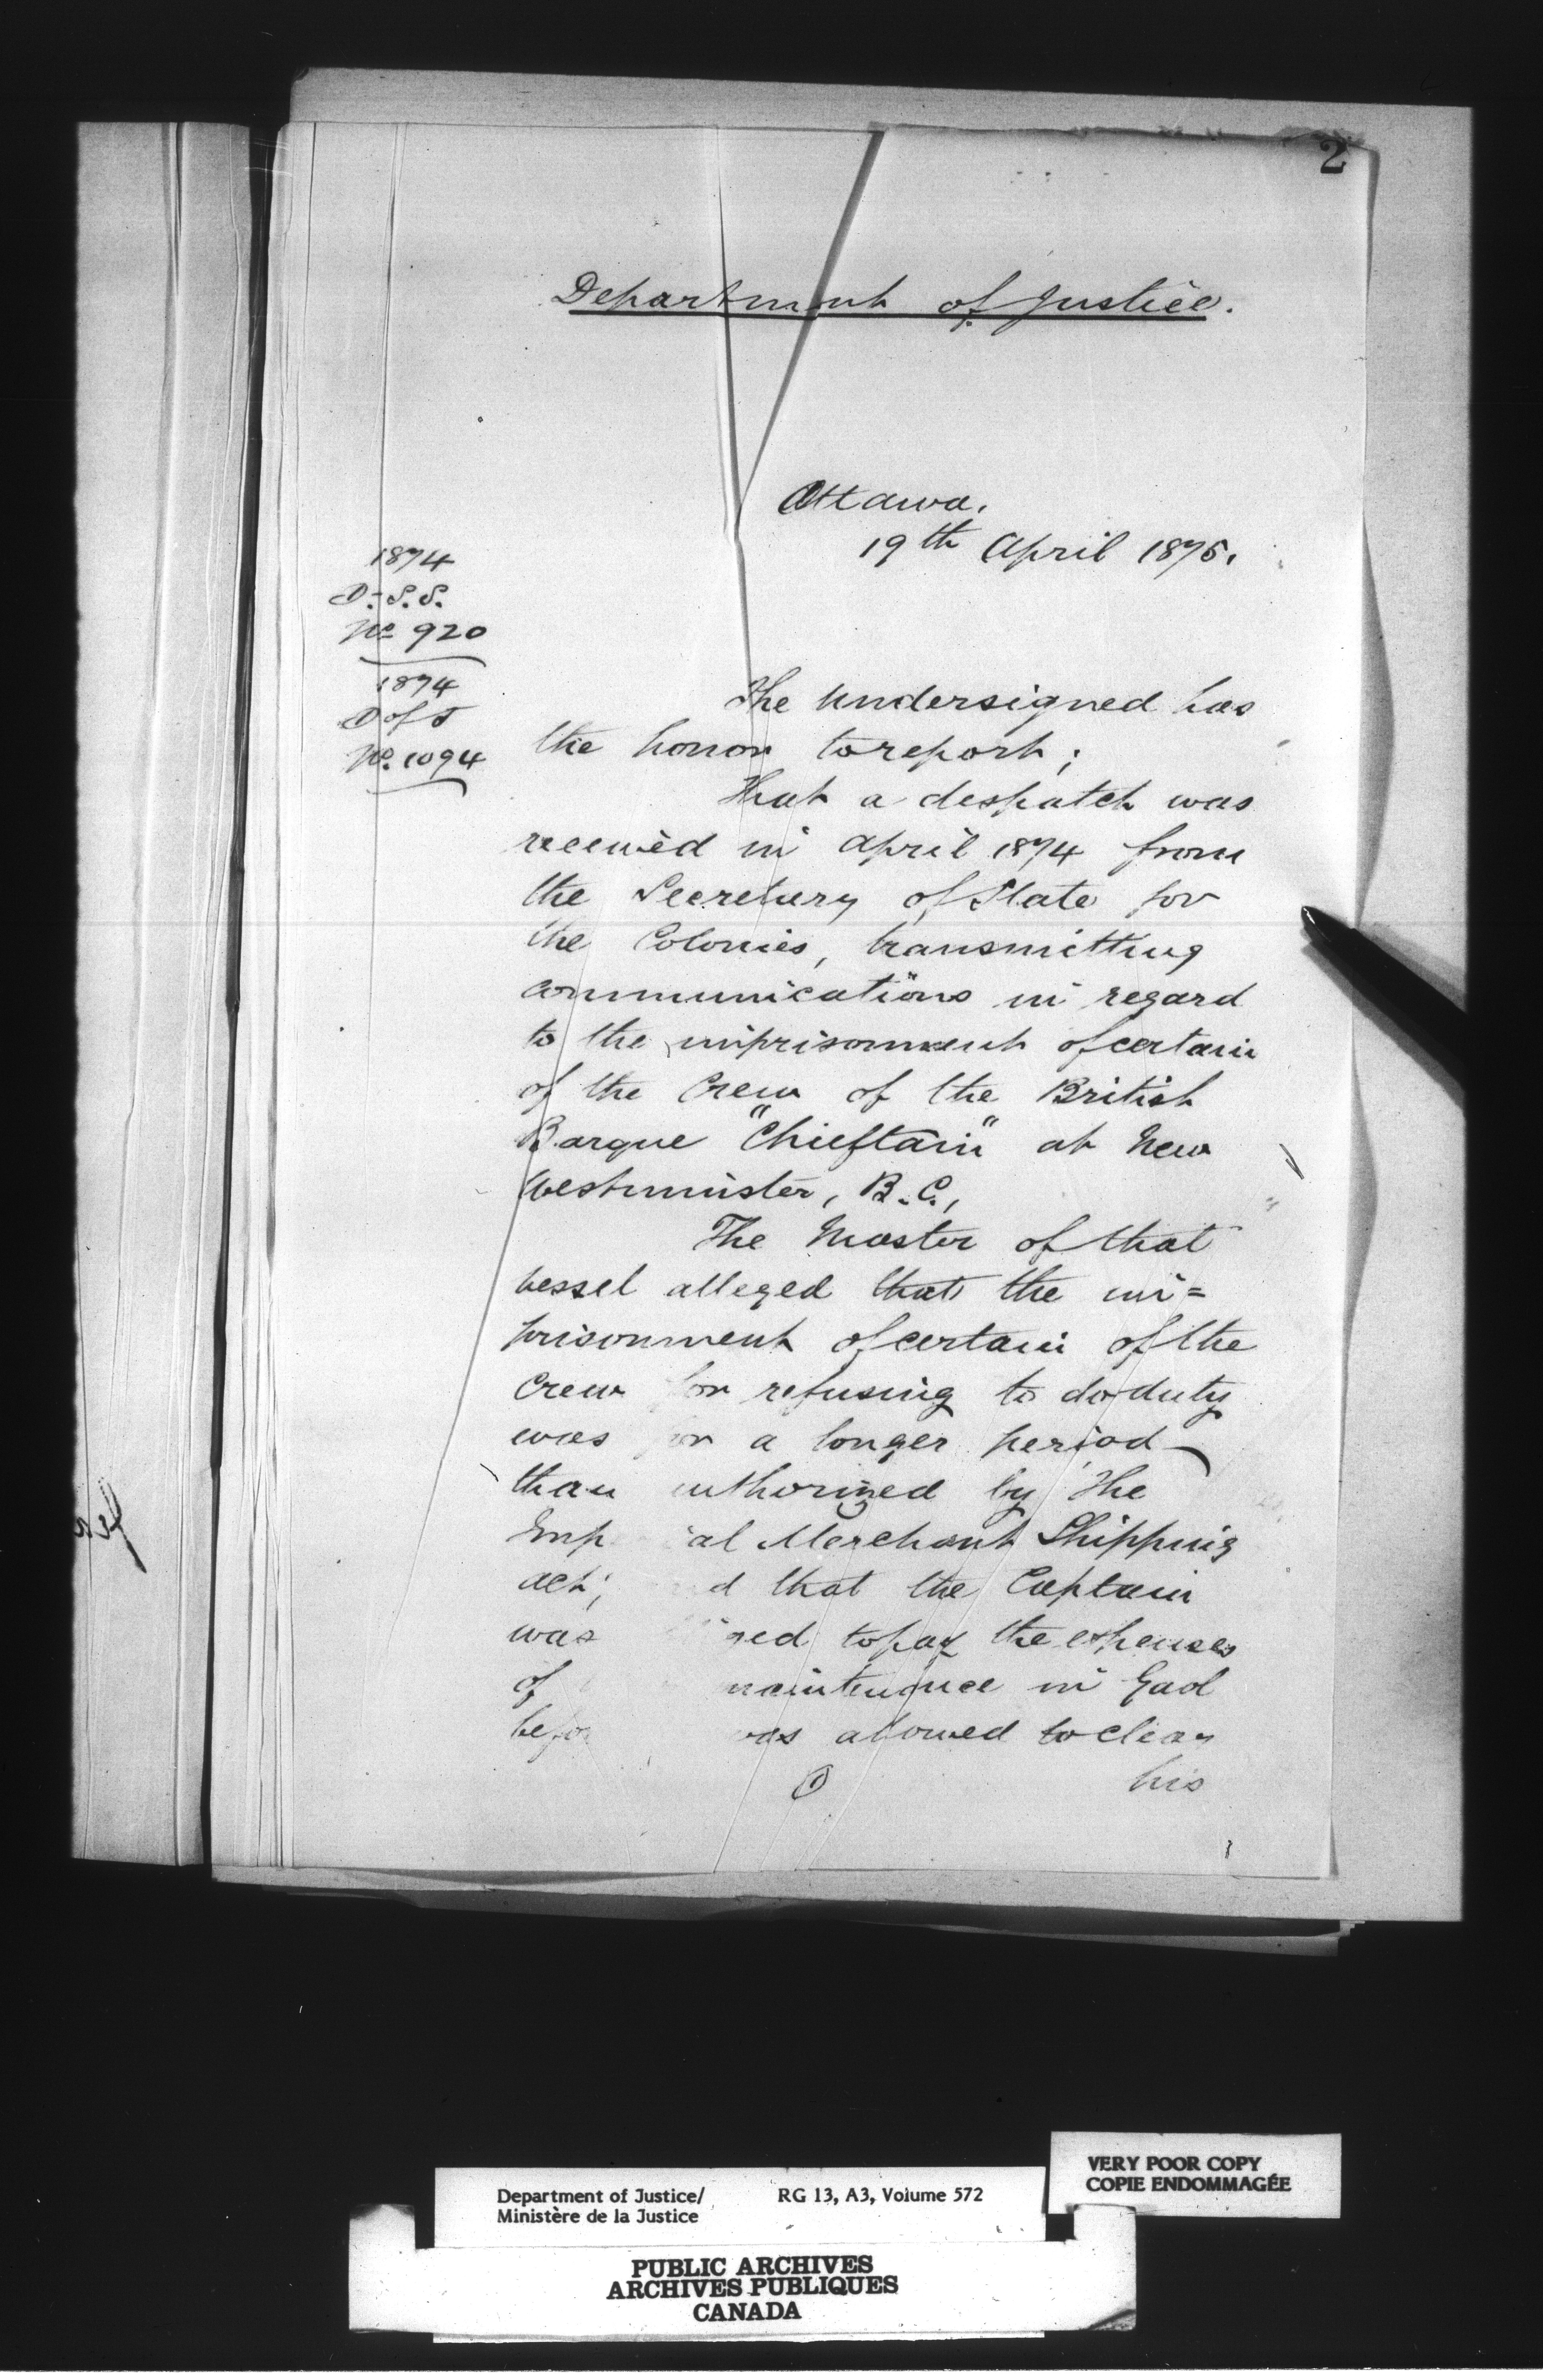 2
Department of Justice.
Ottawa.
19th April 1875.
1874
D. S. S.
No 920
1874
D of J
No. 1094
The Undersigned has
the honor to report;
That a despatch was
received in April 1874 from
the Secretary of State for
the Colonies, transmitting
communications in regard
to the imprisonment of certain
of the Crew of the British
Barque "Chieftain" at New
Westminster, B.C.,
The Master of that
vessel alleged that the im=
prisonment of certain of the
Crew for refusing to do duty
was for a longer period
than authorized by the
Imp al Merchant Shipping
Act; d that the Captain
was red to pay the expenses
of maintenance in Gaol
befor was allowed to clear
1
his
Department of Justice/
Ministère de la Justice
RG 13, A3, Volume 572
VERY POOR COPY
COPIE ENDOMMAGÉE
PUBLIC ARCHIVES
ARCHIVES PUBLIQUES
CANADA